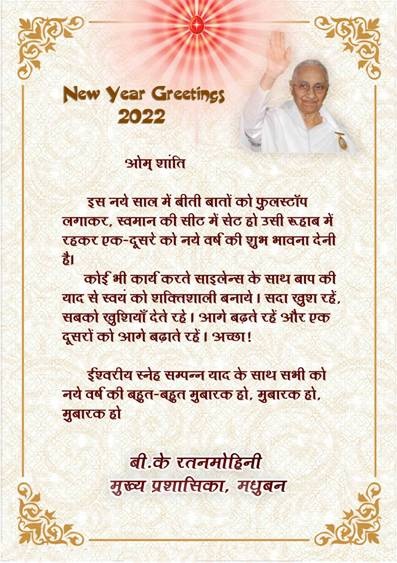 New Year Greetings
2022
ओम् शांति
इस नये साल में बीती बातों को फुलस्टॉप
लगाकर, स्वमान की सीट में सेट हो उसी रूहाब में
रहकर एक-दूसरे को नये वर्ष की शुभ भावना देनी
है।
कोई भी कार्य करते साइलेन्स के साथ बाप की
याद से स्वयं को शक्तिशाली बनाये। सदा खुश रहें,
सबको खुशियाँ देते रहें। आगे बढ़ते रहें और एक
दूसरों को आगे बढ़ाते रहें। अच्छा!
ईश्वरीय स्नेह सम्पन्न याद के साथ सभी को
नये वर्ष की बहुत-बहुत मुबारक हो, मुबारक हो,
मुबारक हो
बी.के रतनमोहिनी
मुख्य प्रशासिका, मधुबन